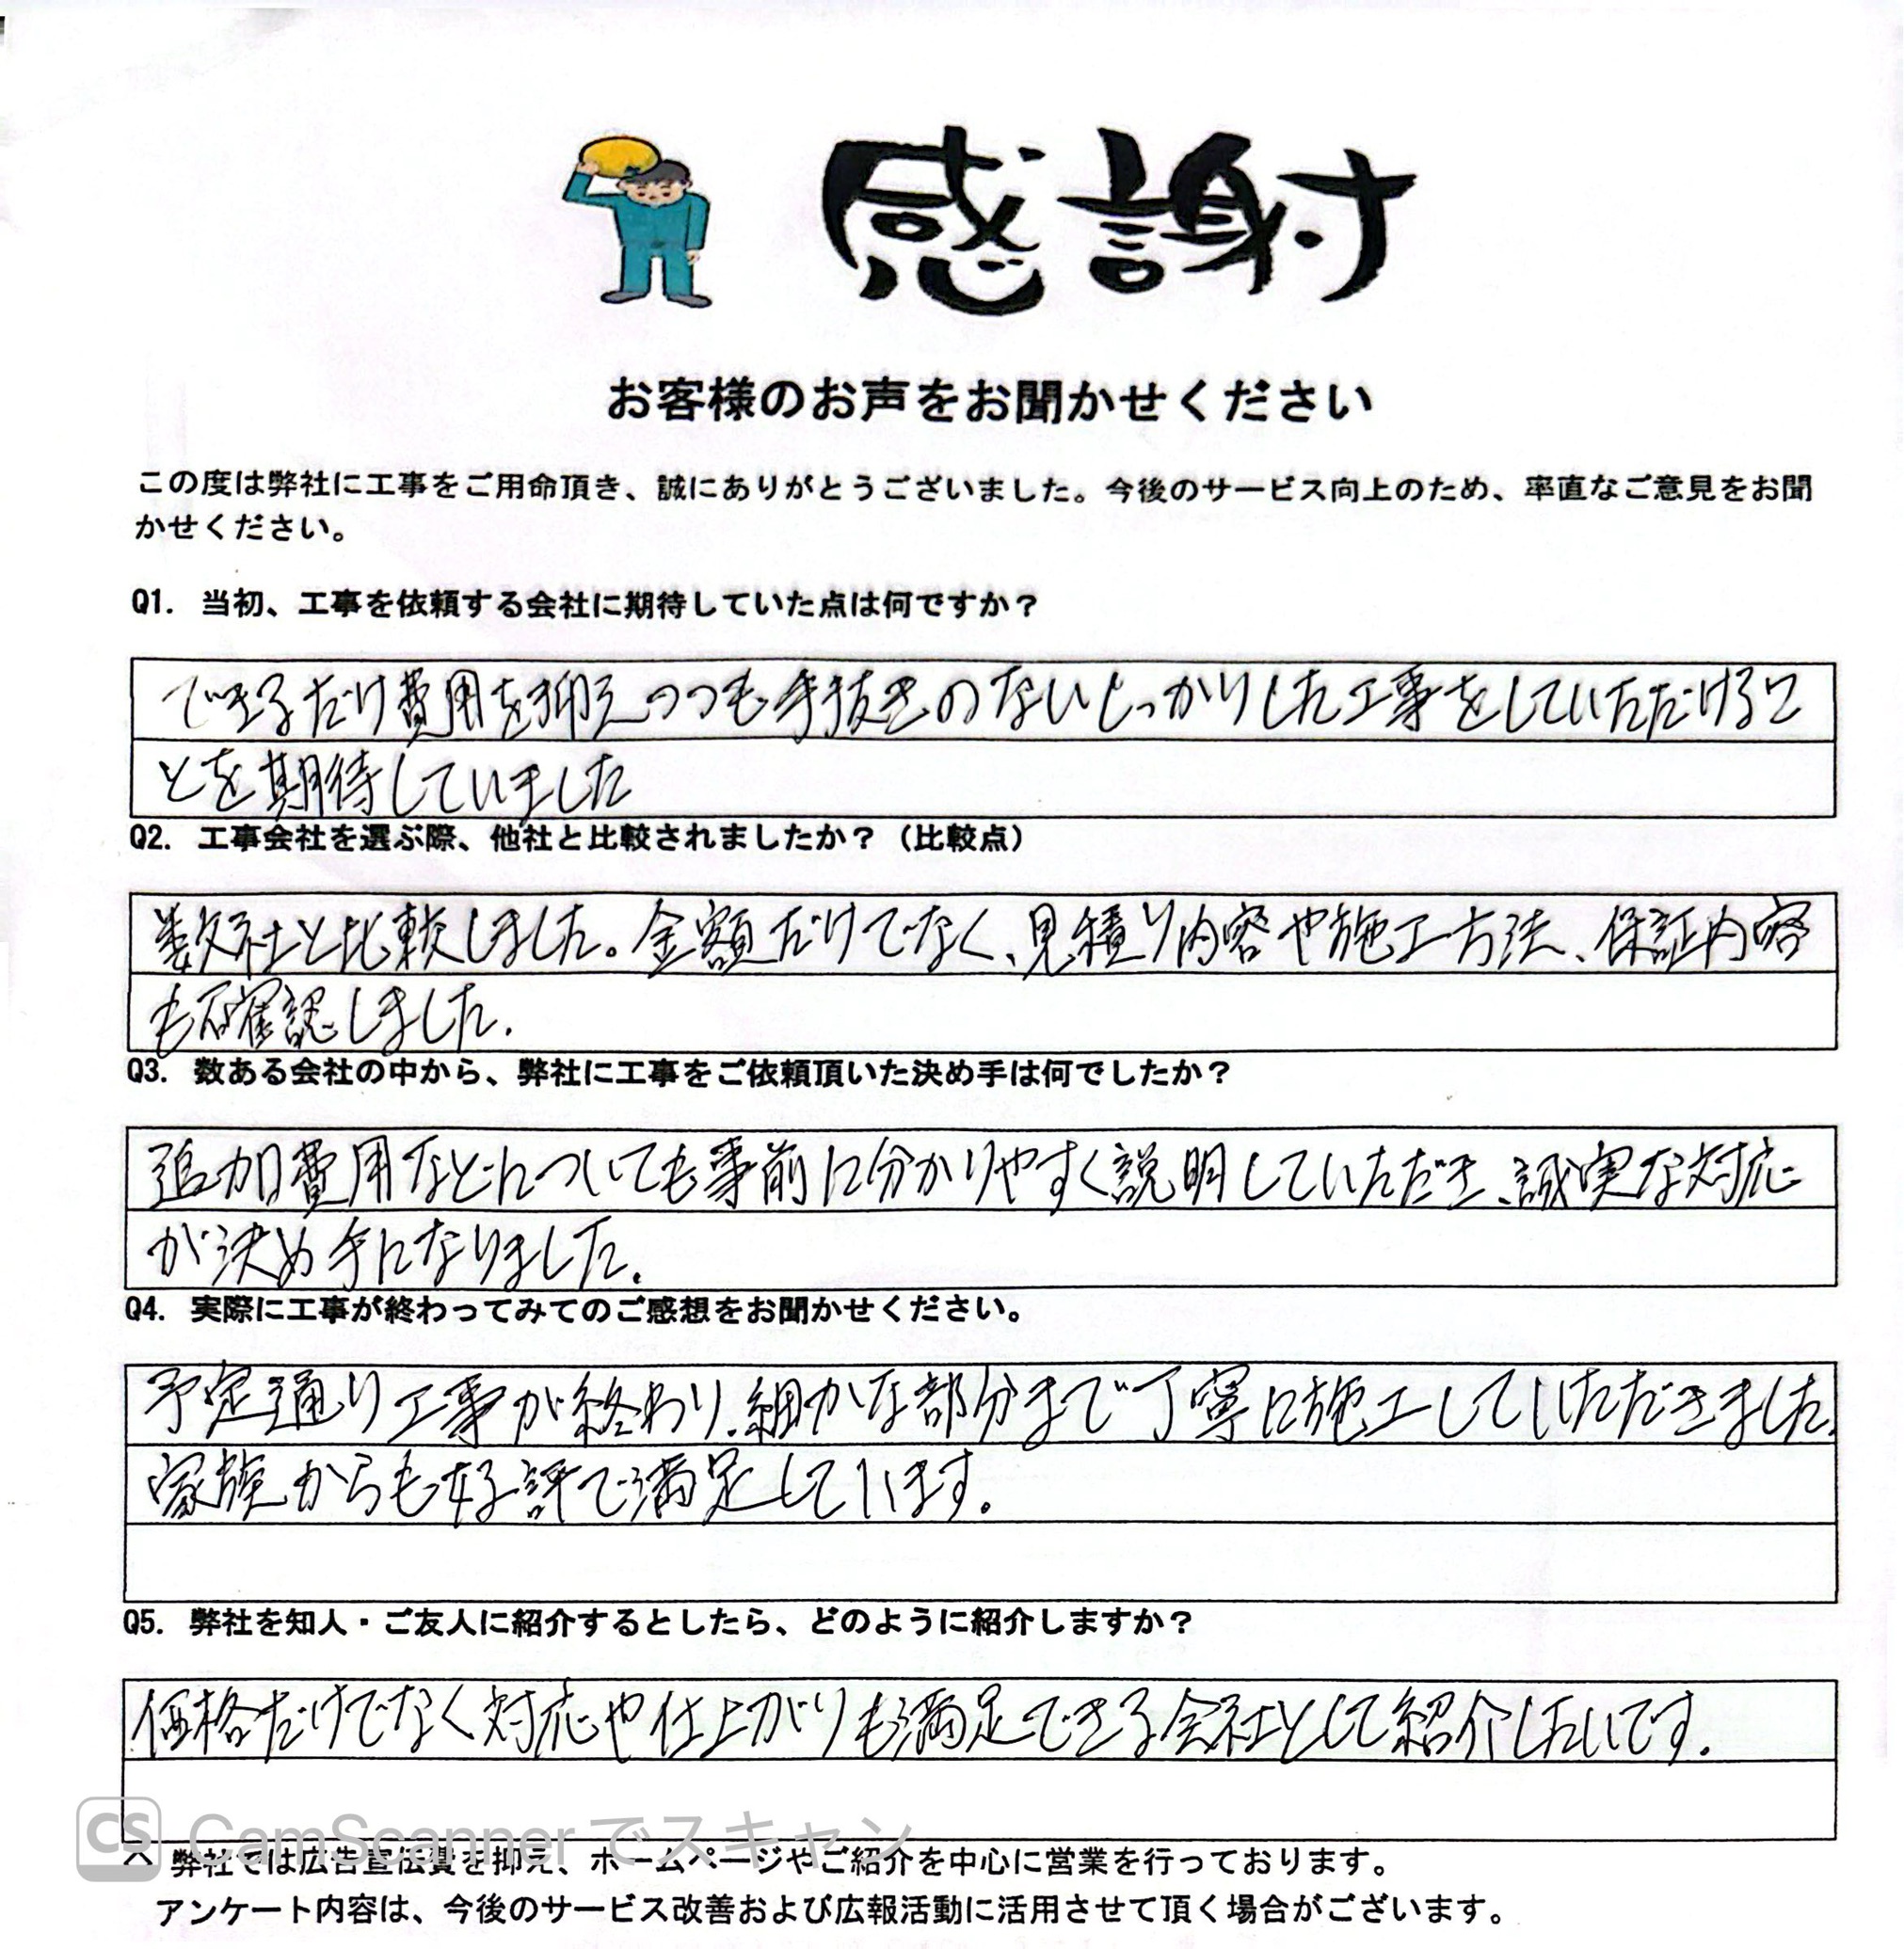 感謝
お客様のお声をお聞かせください
この度は弊社に工事をご用命頂き、誠にありがとうございました。今後のサービス向上のため、率直なご意見をお聞
かせください。
Q1. 当初、工事を依頼する会社に期待していた点は何ですか？
できるだけ費用を抑えつつも手抜きのないしっかりした工事をしていただけるこ
とを期待していました
Q2. 工事会社を選ぶ際、他社と比較されましたか？（比較点）
数社と比較しました。金額だけでなく、見積り内容や施工方法、保証内容
も確認しました.
Q3. 数ある会社の中から、弊社に工事をご依頼頂いた決め手は何でしたか？
追加費用などについても事前に分かりやすく説明していただき、誠実な対応
が決め手になりました.
Q4. 実際に工事が終わってみてのご感想をお聞かせください。
予定通り工事が終わり、細かな部分まで丁寧に施工していただきました.
家族からも好評で満足しています。
Q5. 弊社を知人・ご友人に紹介するとしたら、どのように紹介しますか？
価格だけでなく対応や仕上がりも満足できる会社として紹介したいです.
CS CamScannerでスキャン
弊社では広告宣伝費を抑え、ホームページやご紹介を中心に営業を行っております。
アンケート内容は、今後のサービス改善および広報活動に活用させて頂く場合がございます。